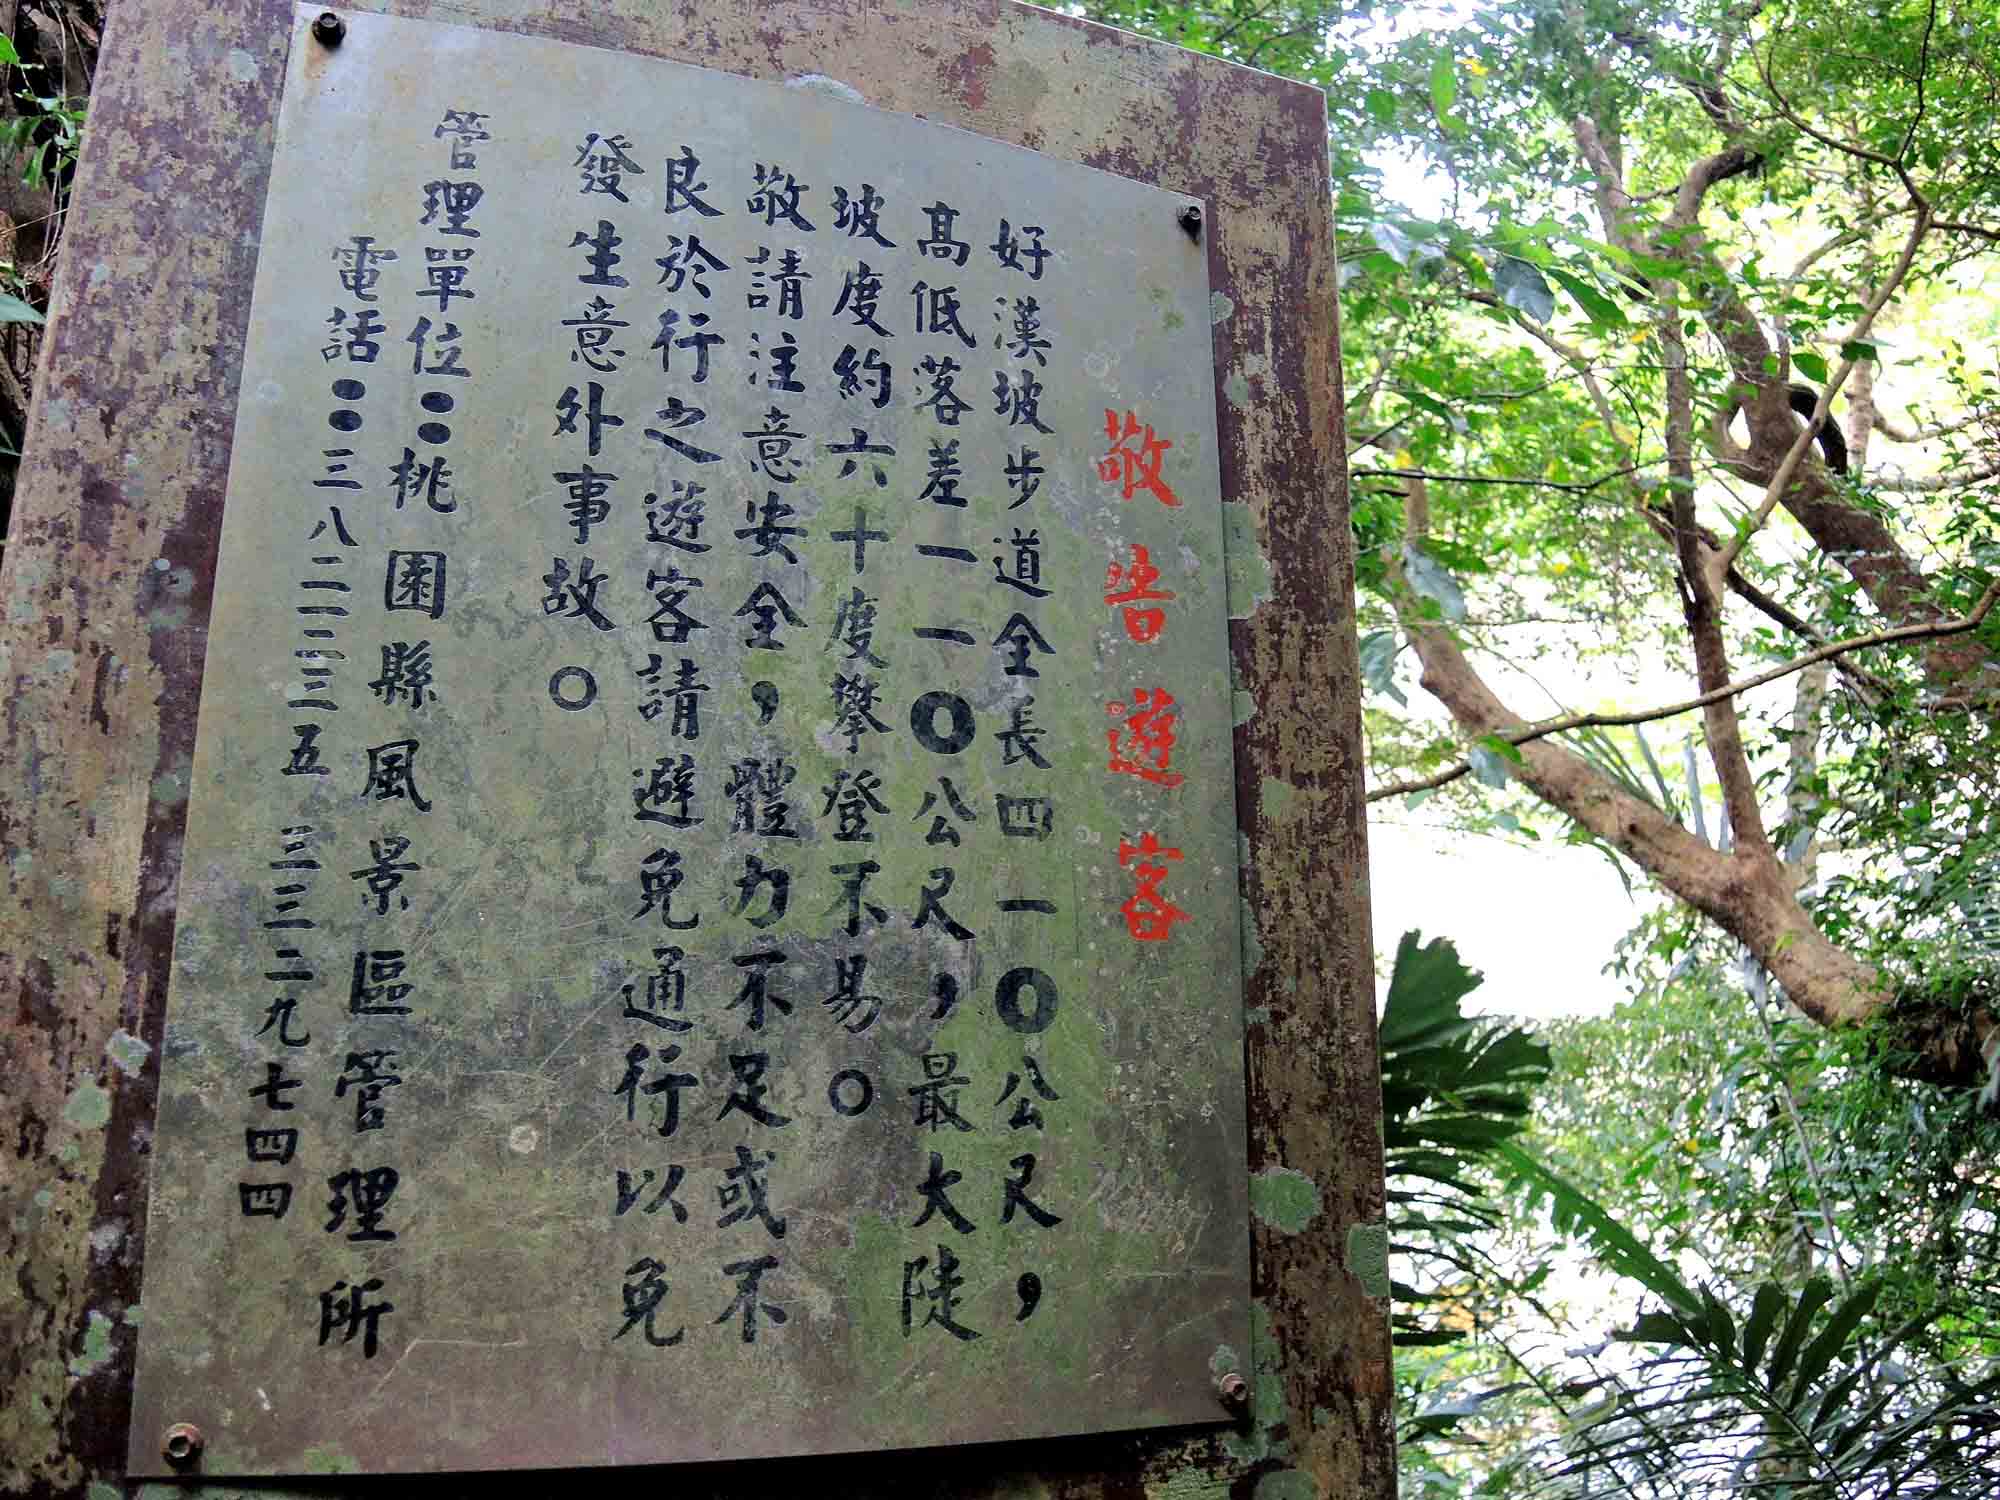 敬告遊客
好漢坡步道全長四一〇公尺，
高低落差一一〇公尺，最大陡
坡度約六十度攀登不易。
敬請注意安全，體力不足或不
良於行之遊客請避免通行以免
發生意外事故。
管理單位：桃園縣風景區管理所
電話：三八二一二三五 三三二九七四四